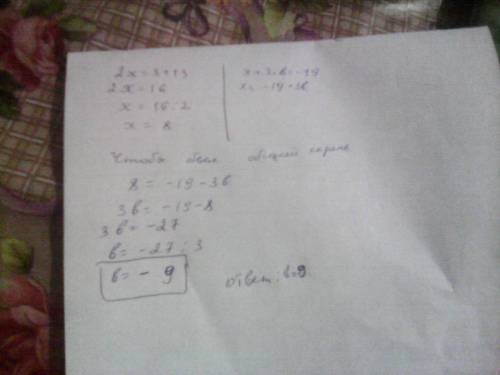 2x = 3 + 13
2x = 16
x = 16 : 2
x = 8
x + 3b = -19
x = -19 - 3b
Чтобы был общий корень
8 = -19 - 3b
3b = -19 - 8
3b = -27
b = -27 : 3
b = - 9
Ответ. b=9.